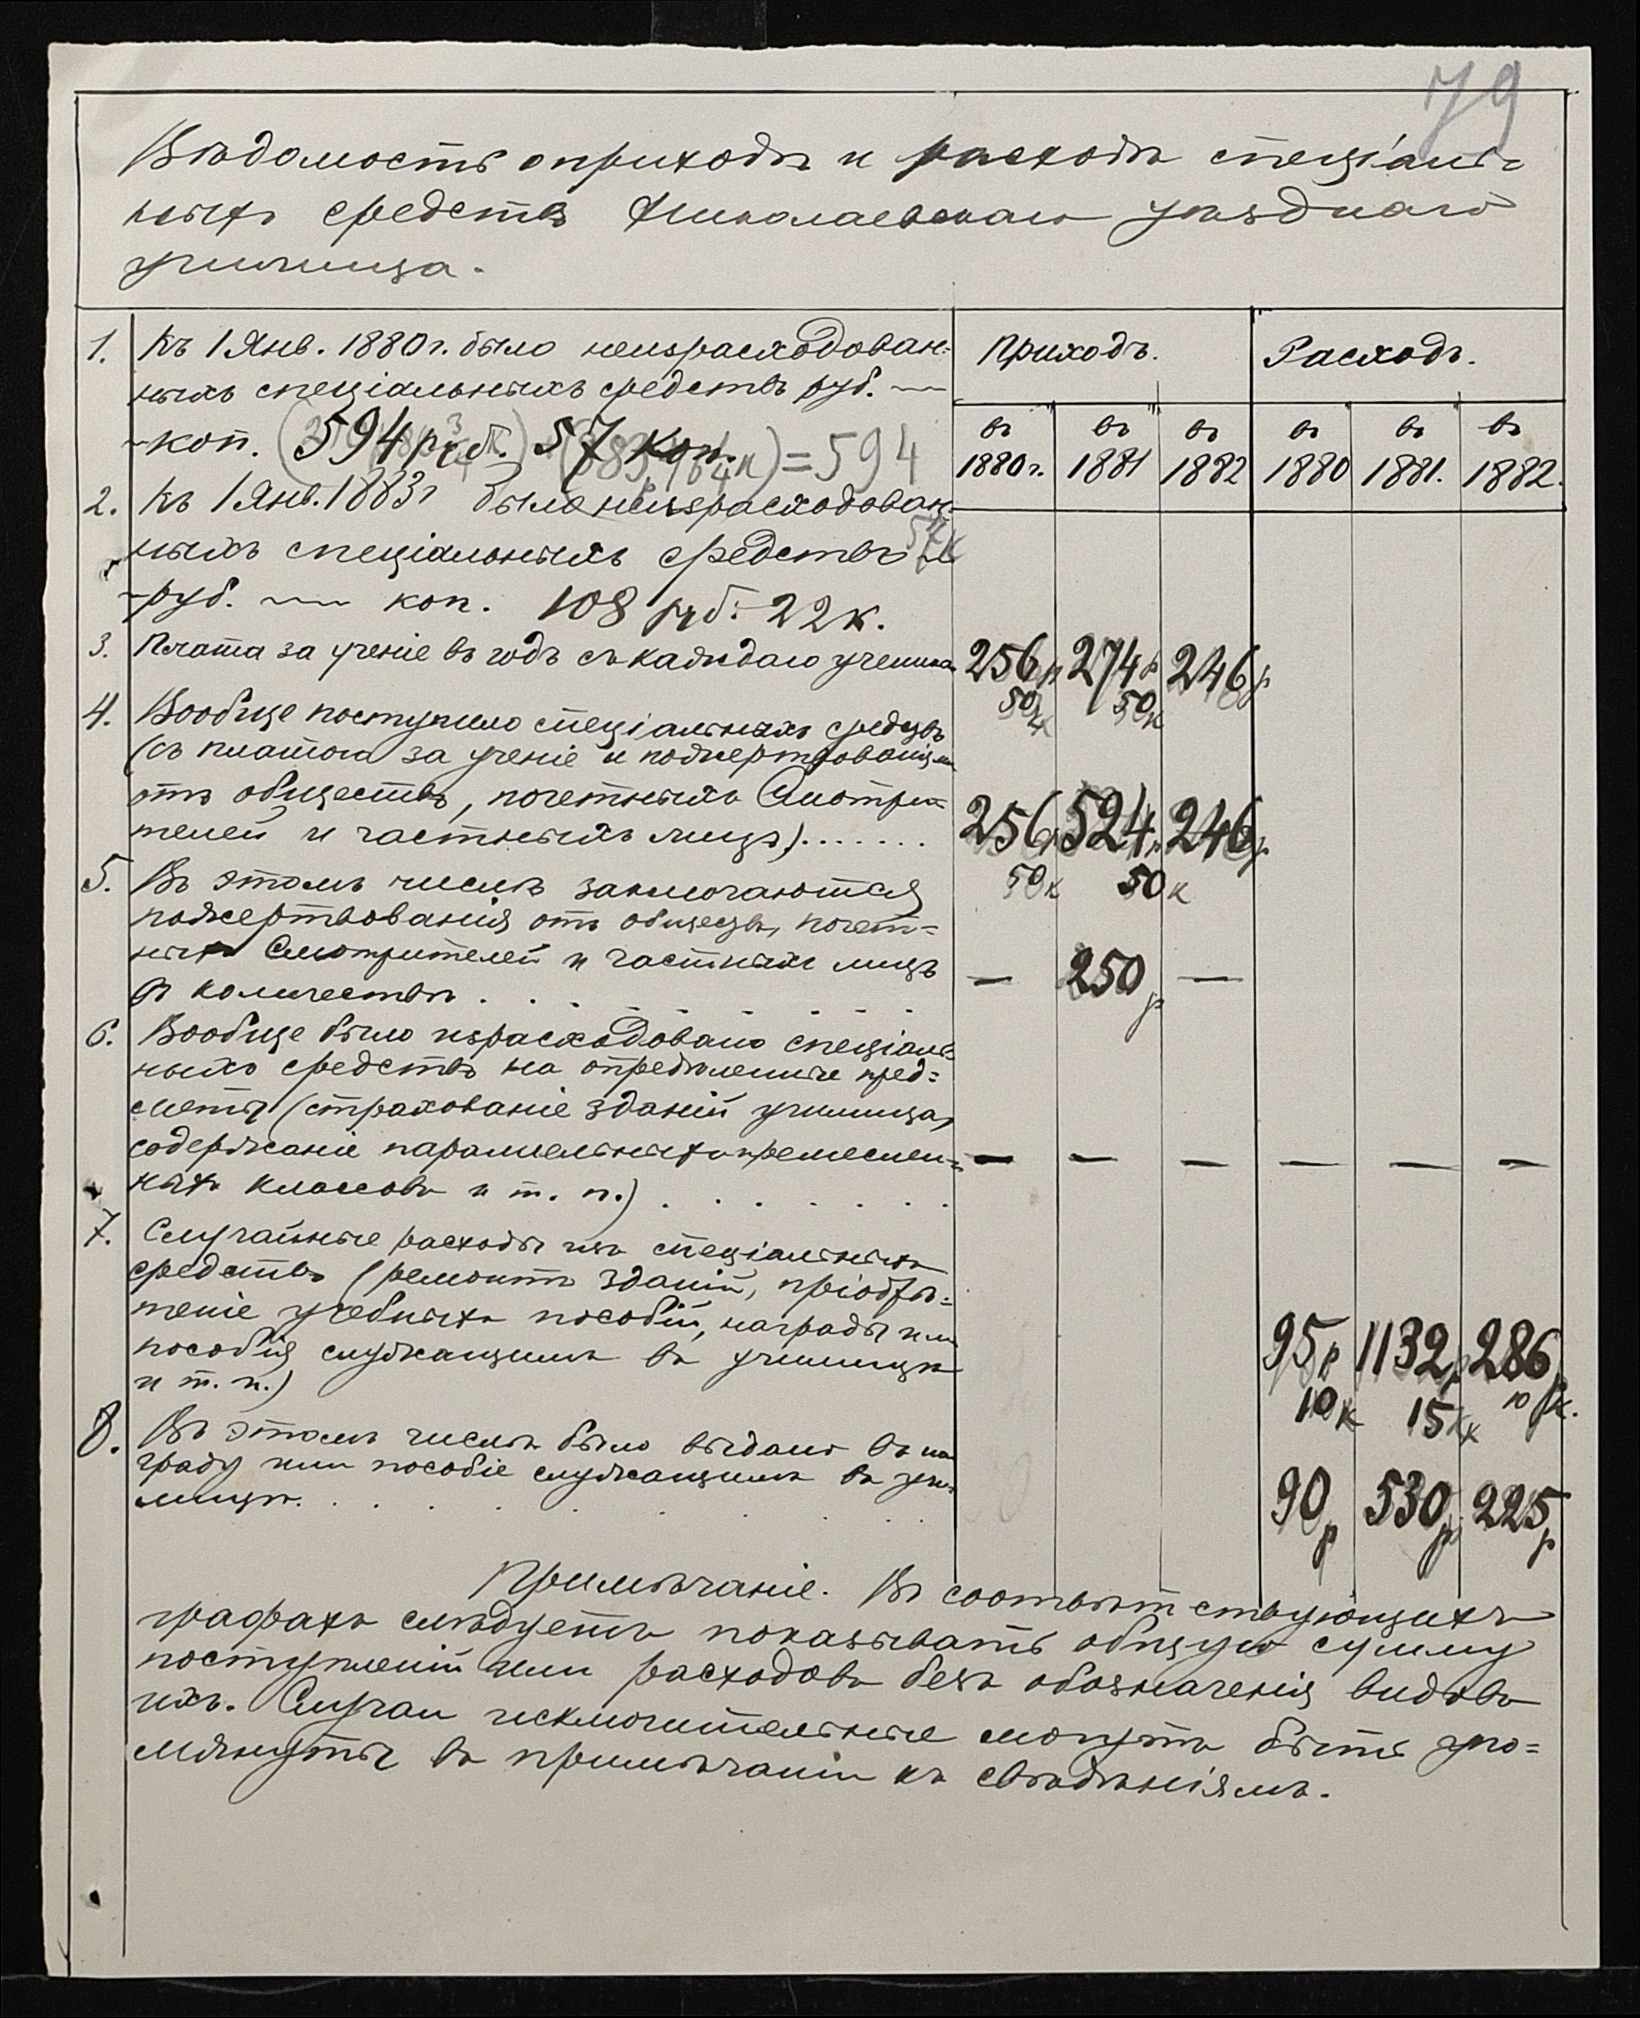 79
Вѣдомость о приходѣ и расходѣ спеціаль=
ныхъ средствъ Николаевскаго уѣзднаго
училища.
1. Къ 1 Янв. 1880 г. было неизрасходован-
ныхъ спеціальныхъ средствъ руб. —
— коп. 594 руб. 57 коп. = 594
Приходъ. Расходъ.
въ 1880 г. въ 1881 въ 1882 въ 1880 въ 1881. въ 1882.
2. Къ 1 Янв. 1883 г было неизрасходован-
57 к
ныхъ спеціальныхъ средствъ —
— руб. — коп. 108 руб. 22 к.
3. Плата за ученіе въ годъ съ каждаго ученика 256 р 50 к 274 р 50 к 246 р
4. Вообще поступило спеціальныхъ средствъ
(съ платою за ученіе и пожертвованіями
отъ обществъ, почетныхъ Смотри-
телей и частныхъ лицъ)....... 256 р 50 к 524 р 50 к 246 р
5. Въ этомъ числѣ заключаются
пожертвованія отъ обществъ, почет=
ныхъ Смотрителей и частныхъ лицъ
въ количествѣ . . . . . . — 250 р —
6. Вообще было израсходовано спеціаль-
ныхъ средствъ на опредѣленные пред=
меты (страхованіе зданій училища,
содержаніе параллельныхъ и ремеслен- — — — — — —
ныхъ классовъ и т. п.) . . . . . . .
7. Случайные расходы изъ спеціальныхъ
средствъ (ремонтъ зданій, пріобрѣ=
теніе учебныхъ пособій, награды или
пособія служащимъ въ училищѣ
и т. п.) 95 р 10 к 1132 р 15 к 286 р 10 к.
8. Въ этомъ числѣ было выдано въ на
граду или пособіе служащимъ въ учи-
лищѣ. . . . . . . . 90 р 530 р. 225 р
Примѣчаніе. Въ соотвѣтствующихъ
графахъ слѣдуетъ показывать общую сумму
поступленій или расходовъ безъ обозначенія видовъ
ихъ. Случаи исключительные могутъ быть упо=
мянуты въ примѣчаніи къ свѣдѣніямъ.